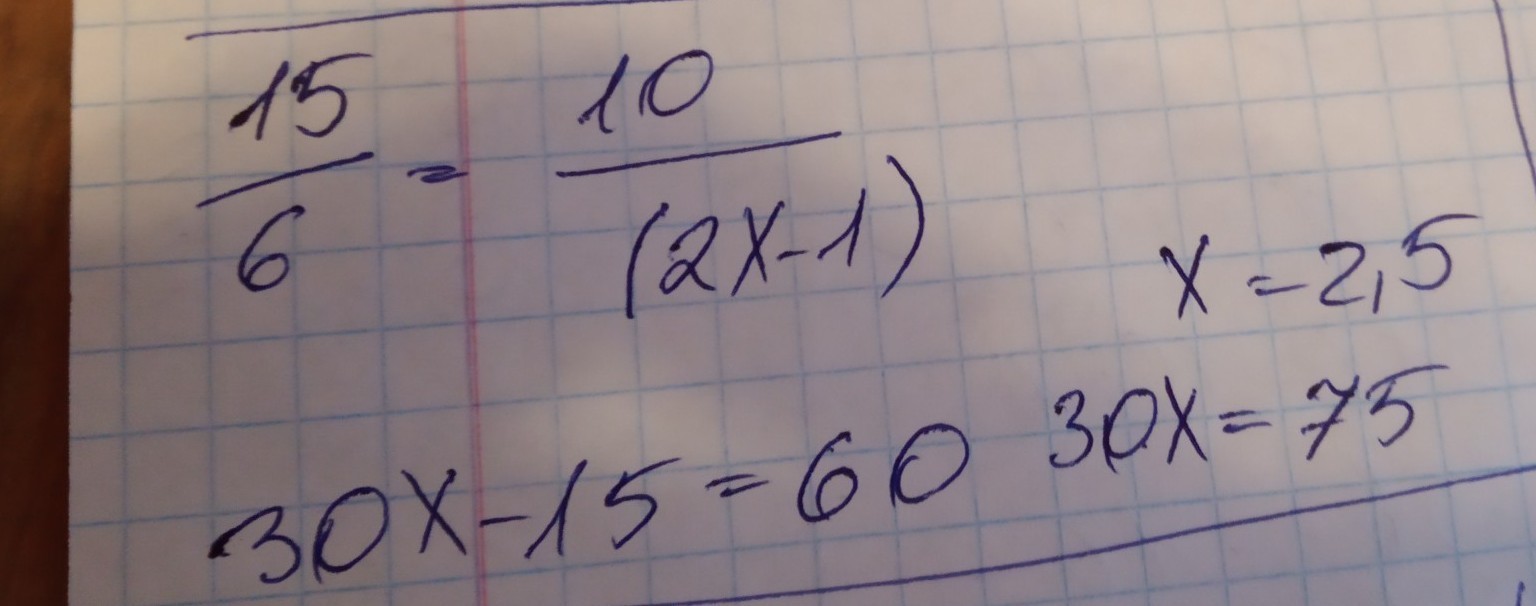 15/6 = 10/(2x-1)
x = 2,5
30x-15=60 30x = 75